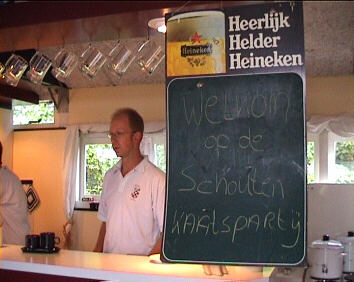 Heerlijk
Helder
Heineken
Heineken
Welkom
op de
Schouten
KAATSPARTIJ